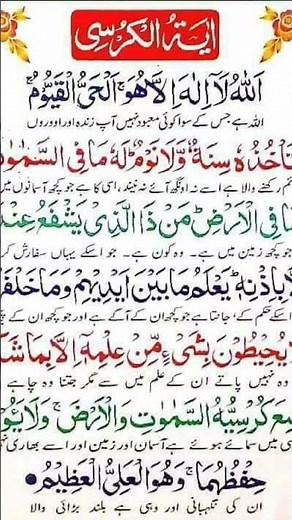 آیۃ الکرسی
اَللّٰهُ لَاۤ اِلٰهَ اِلَّا هُوَ ۚ اَلْحَیُّ الْقَیُّوْمُ ۚ
اللہ ہے جس کے سوا کوئی معبود نہیں آپ زندہ اور اوروں
تَاْخُذُهٗ سِنَةٌ وَّلَا نَوْمٌ ؕ لَهٗ مَا فِی السَّمٰوٰ
قائم رکھنے والا ہے اسے نہ اونگھ آئے نہ نیند، اسی کا ہے جو کچھ آسمانوں میں
مَا فِی الْاَرْضِ ؕ مَنْ ذَا الَّذِیْ یَشْفَعُ عِنْدَ
جو کچھ زمین میں ہے۔ وہ کون ہے۔ جو اسکے یہاں سفارش کر
اِلَّا بِاِذْنِهٖ ؕ یَعْلَمُ مَا بَیْنَ اَیْدِیْهِمْ وَمَا خَلْفَ
اسکے حکم کے، جانتا ہے جو کچھ ان کے آگے ہے اور جو کچھ ان کے پیچھے
یُحِیْطُوْنَ بِشَیْءٍ مِّنْ عِلْمِهٖۤ اِلَّا بِمَا شَآ
وہ نہیں پاتے ان کے علم میں سے مگر جتنا وہ چاہے
سِعَ كُرْسِیُّهُ السَّمٰوٰتِ وَالْاَرْضَ ۚ وَلَا یَـُٔوْ
میں سمائے ہوئے ہے آسمان اور زمین اور اسے بھاری نہیں
حِفْظُهُمَا ۚ وَهُوَ الْعَلِیُّ الْعَظِیْمُ
ان کی نگہبانی اور وہی ہے بلند بڑائی والا